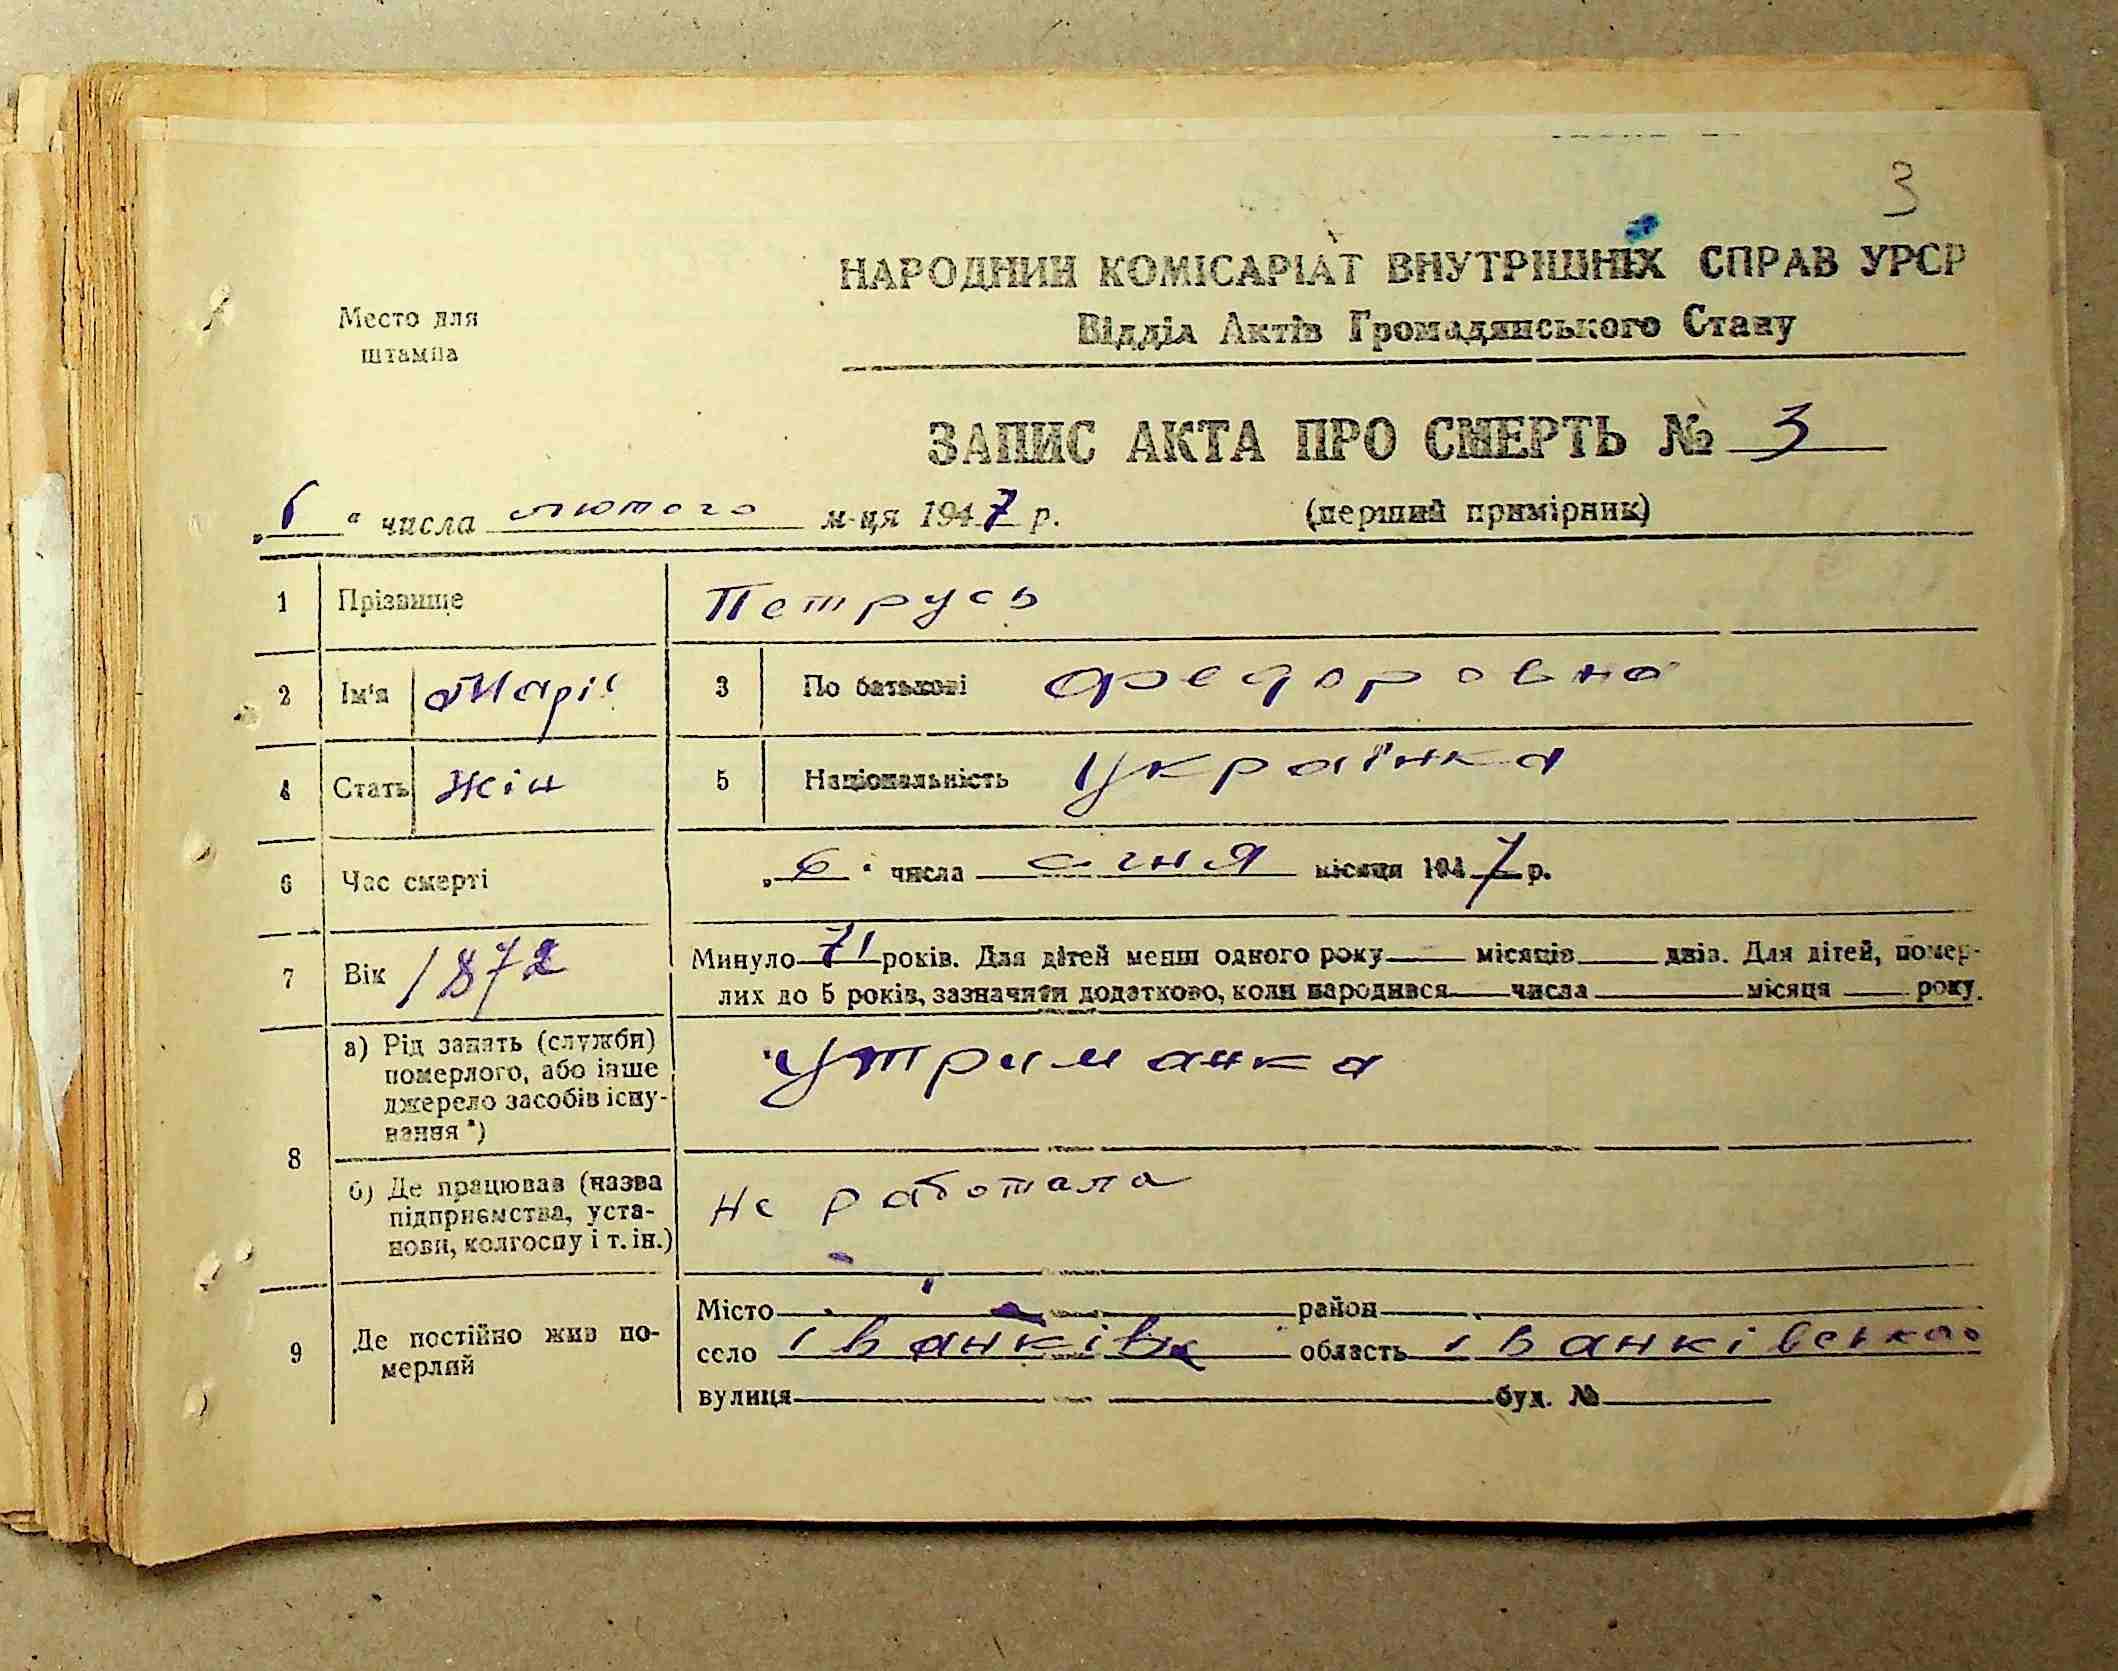 3
НАРОДНИЙ КОМІСАРІАТ ВНУТРІШНІХ СПРАВ УРСР
Відділ Актів Громадянського Стану
Место для
штампа
ЗАПИС АКТА ПРО СМЕРТЬ № 3
„ " числа лютого м-ця 1947 р. (перший примірник)
1 Прізвище Петрусь
2 Ім'я Марі 3 По батькові Федоровна
4 Стать жін 5 Національність Українка
6 Час смерті „6" числа січня місяця 1947 р.
7 Вік 1872 Минуло 71 років. Для дітей менш одного року місяців днів. Для дітей, помер-
лих до 5 років, зазначити додатково, коли народився числа місяця року.
8 а) Рід занять (служби)
померлого, або інше
джерело засобів існу-
вання *)
Утриманка
б) Де працював (назва
підприємства, уста-
нови, колгоспу і т. ін.)
не работала
9 Де постійно жив по-
мерлий
Місто район
село Іванків область Іванківська
вулиця буд. №